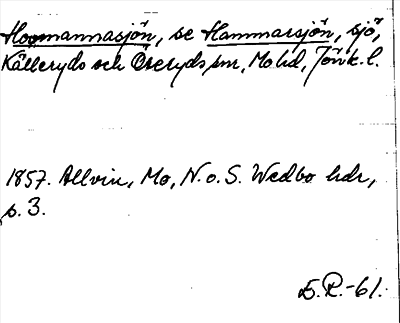 Hoomannasjön, se Hammarsjön, sjö,
Källeryds och Öreryds snr, Mo hd, Jönk. l.
1857. Allvin, Mo, N. o. S. Wedbo hdr,
s. 3.
E. R. -61.